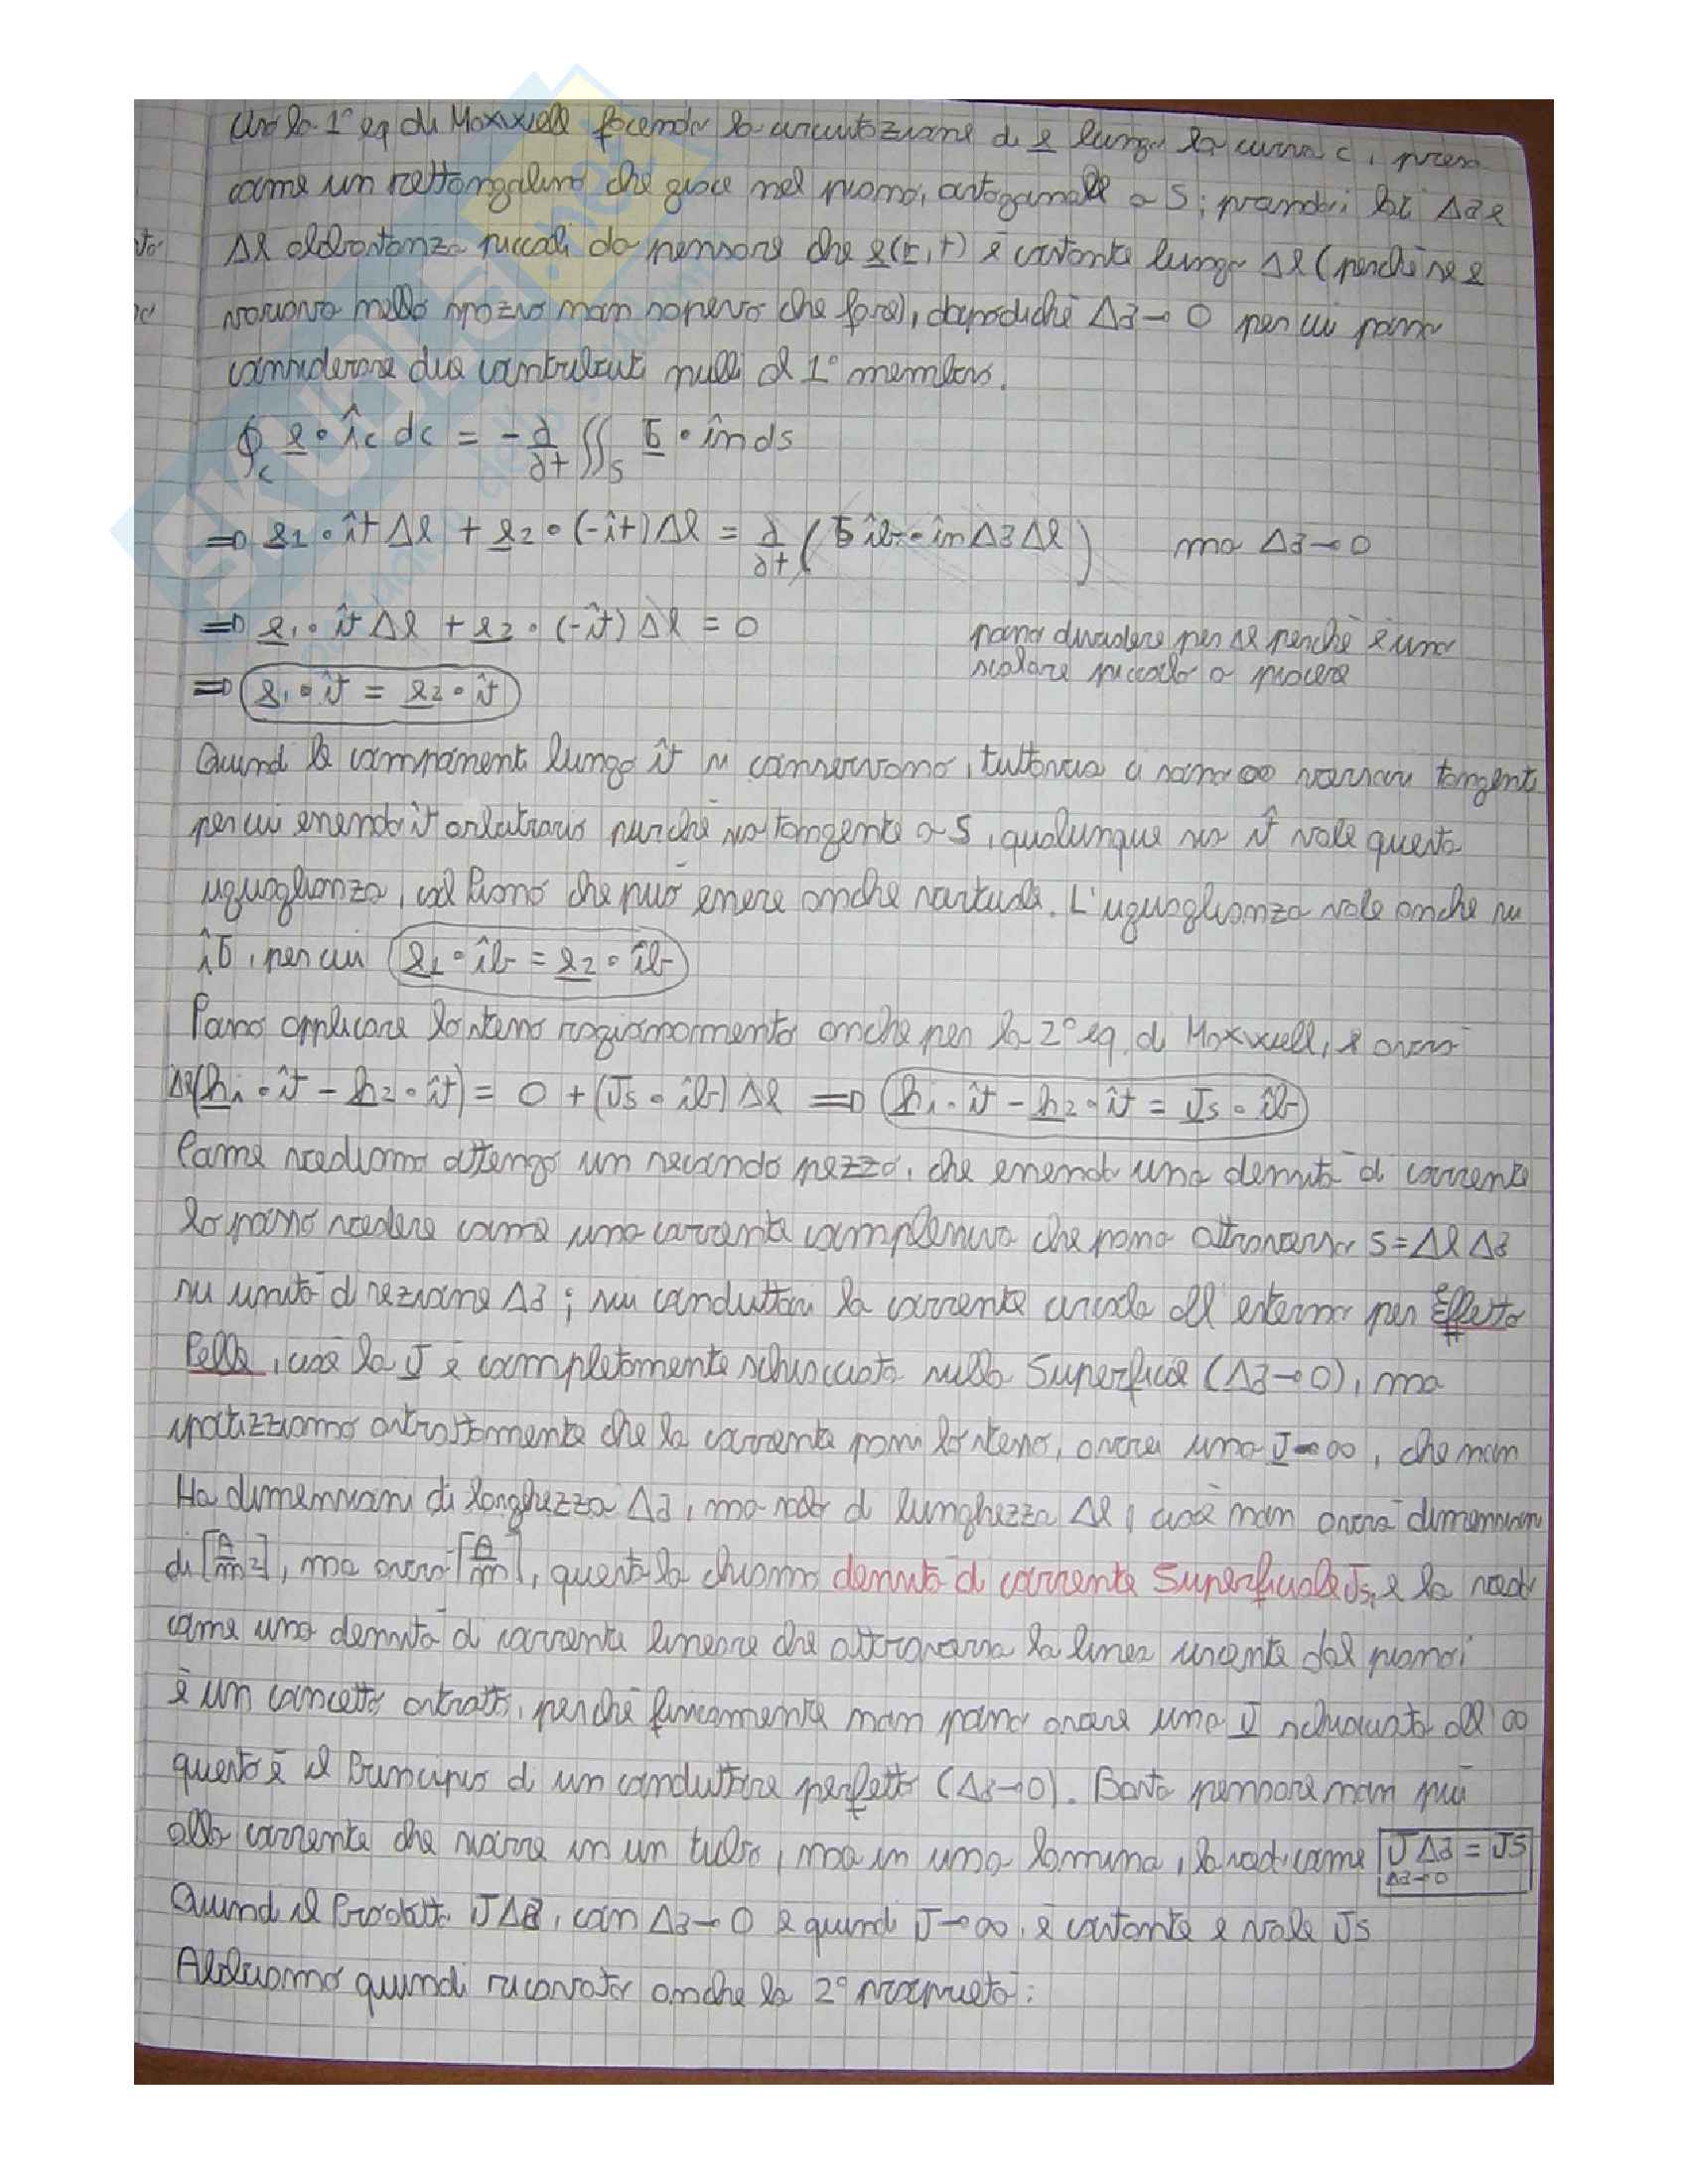 Uso la 1° eq di Maxwell facendo la circuitazione di e lungo la curva c, preso
come un rettangolino che giace nel piano, ortogonale a S; prendo i lati Δz e
Δl abbastanza piccoli da pensare che e(r,t) è costante lungo Δl (perché se e
variava nello spazio non sapevo che fare), dopodiché Δz→0 per cui posso
considerare due contributi nulli al 1° membro.
∮c e • îc dc = - ∂/∂t ∬S b • în ds
⇒ e1 • ît Δl + e2 • (-ît) Δl = ∂/∂t ( b îb • în Δz Δl ) ma Δz→0
⇒ e1 • ît Δl + e2 • (-ît) Δl = 0 posso dividere per Δl perché è uno
scalare piccolo a piacere
⇒ e1 • ît = e2 • ît
Quindi le componenti lungo ît si conservano, tuttavia ci sono ∞ versori tangenti
per cui essendo ît arbitrario purché sia tangente a S, qualunque sia ît vale questa
uguaglianza, col piano che può essere anche virtuale. L'uguaglianza vale anche su
îb, per cui e1 • îb = e2 • îb
Posso applicare lo stesso ragionamento anche per la 2° eq. di Maxwell, e avrò
Δl(h1 • ît - h2 • ît) = 0 + (Js • îb) Δl ⇒ h1 • ît - h2 • ît = Js • îb
Come vediamo ottengo un secondo pezzo, che essendo una densità di corrente
lo posso vedere come una corrente complessiva che passa attraverso S=Δl Δz
su unità di sezione Δz; nei conduttori la corrente circola all'esterno per Effetto
Pelle, cioè la J è completamente schiacciata sulla Superficie (Δz→0), ma
ipotizziamo astrattamente che la corrente passi lo stesso, avrei una J→∞, che non
Ha dimensioni di larghezza Δz, ma solo di lunghezza Δl, cioè non avrà dimensioni
di [A/m2], ma avrò [A/m], questa la chiamo densità di corrente Superficiale Js, e la vedo
come una densità di corrente lineare che attraversa la linea uscente dal piano;
è un concetto astratto, perché fisicamente non posso avere una J schiacciata all'∞
questo è il Principio di un conduttore perfetto (Δz→0). Basta pensare non più
alla corrente che scorre in un tubo, ma in una lamina, la vedo come J Δz = Js
Δz→0
Quindi il Prodotto JΔz, con Δz→0 e quindi J→∞, è costante e vale Js
Abbiamo quindi ricavato anche la 2° proprietà:
SKUOLA.net